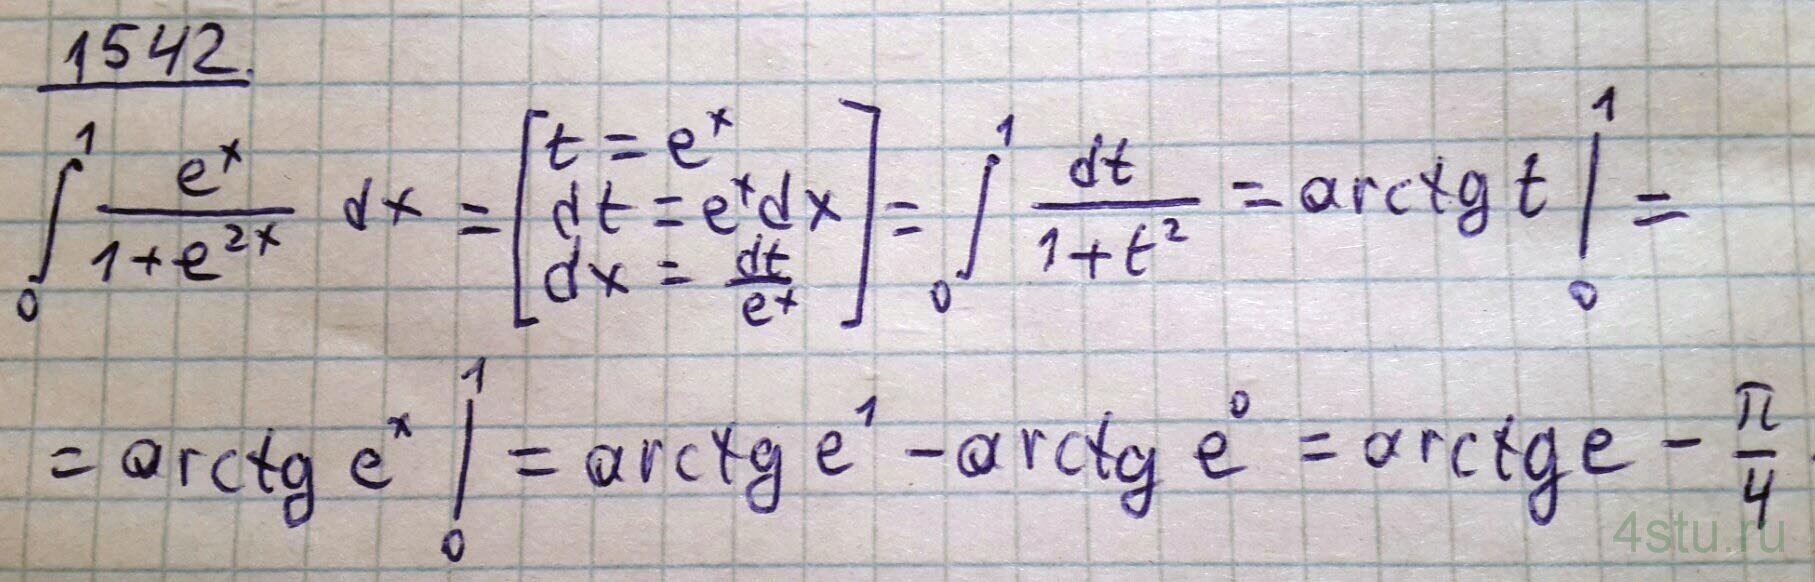 1542.
∫₀¹ e^x/(1+e^{2x}) dx = [t = e^x; dt = e^x dx; dx = dt/e^x] = ∫₀¹ dt/(1+t²) = arctg t |₀¹ =
= arctg e^x |₀¹ = arctg e¹ - arctg e⁰ = arctg e - π/4.
4stu.ru